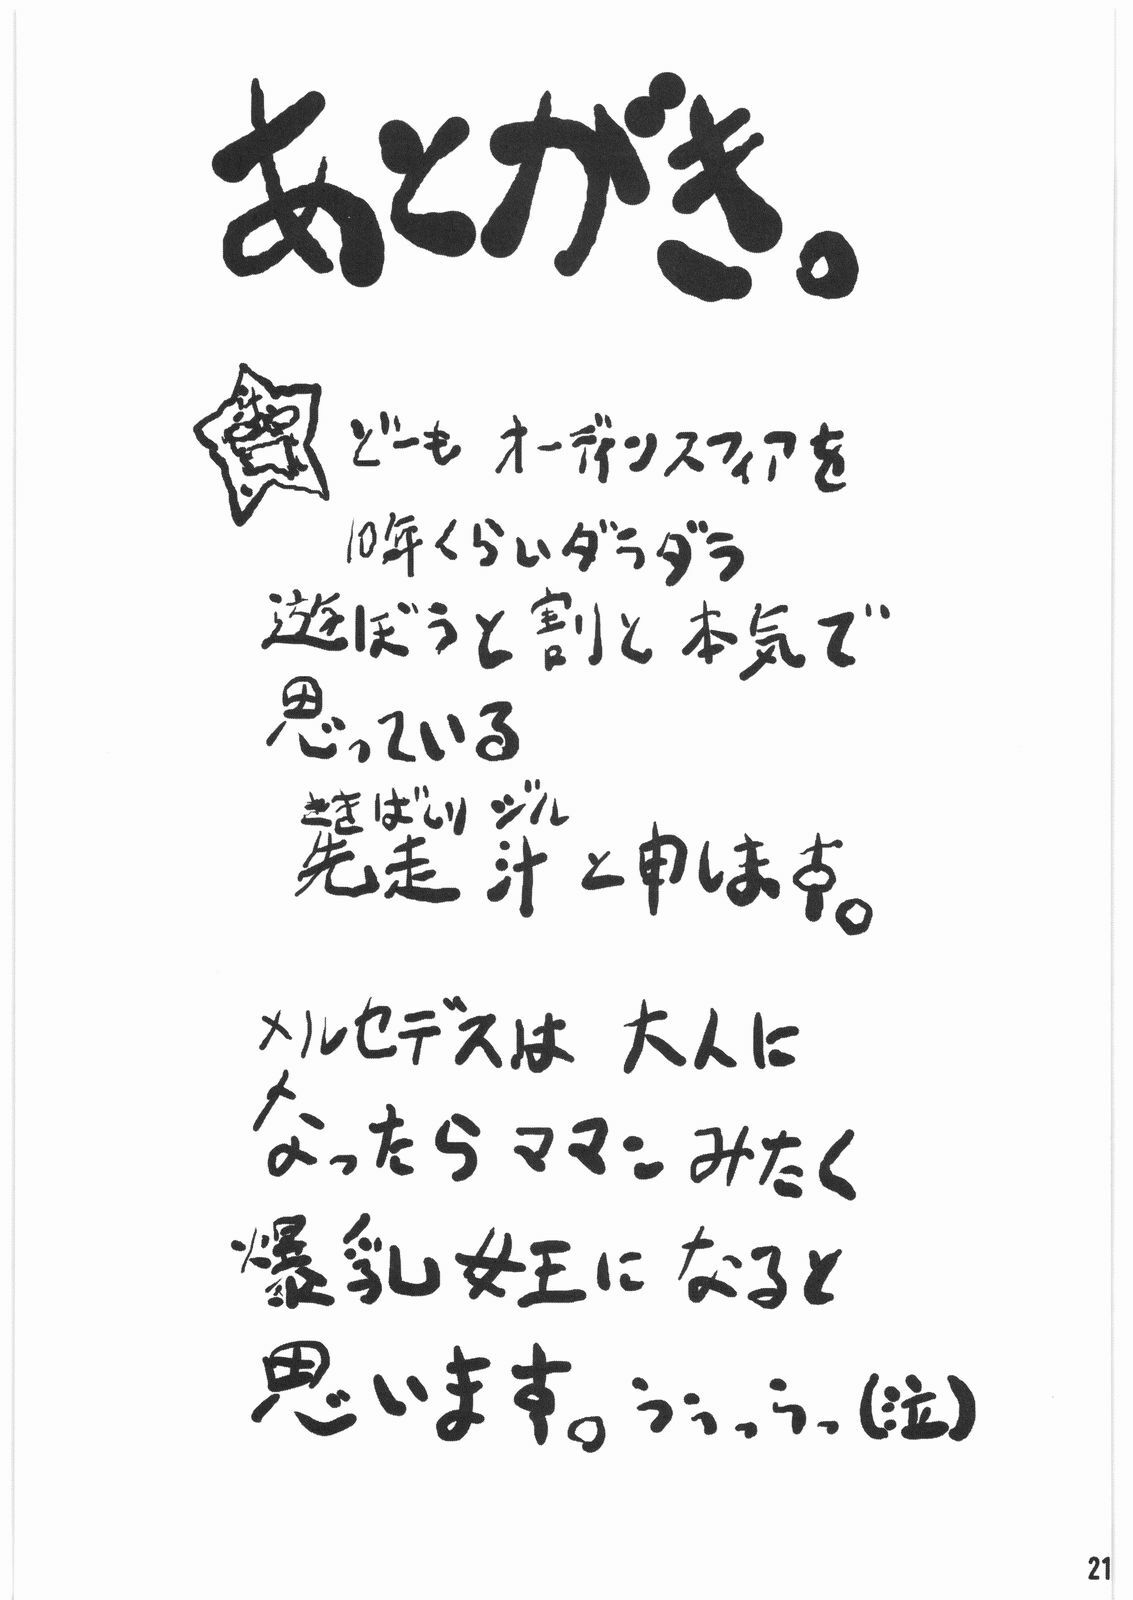 あとがき。
どーも オーディンスフィアを
10年くらいダラダラ
遊ぼうと割と本気で
思っている
さきばしり ジル
先走 汁 と申します。
メルセデスは 大人に
なったら ママン みたく
爆乳女王に なると
思います。うぅっうっ(泣)
21